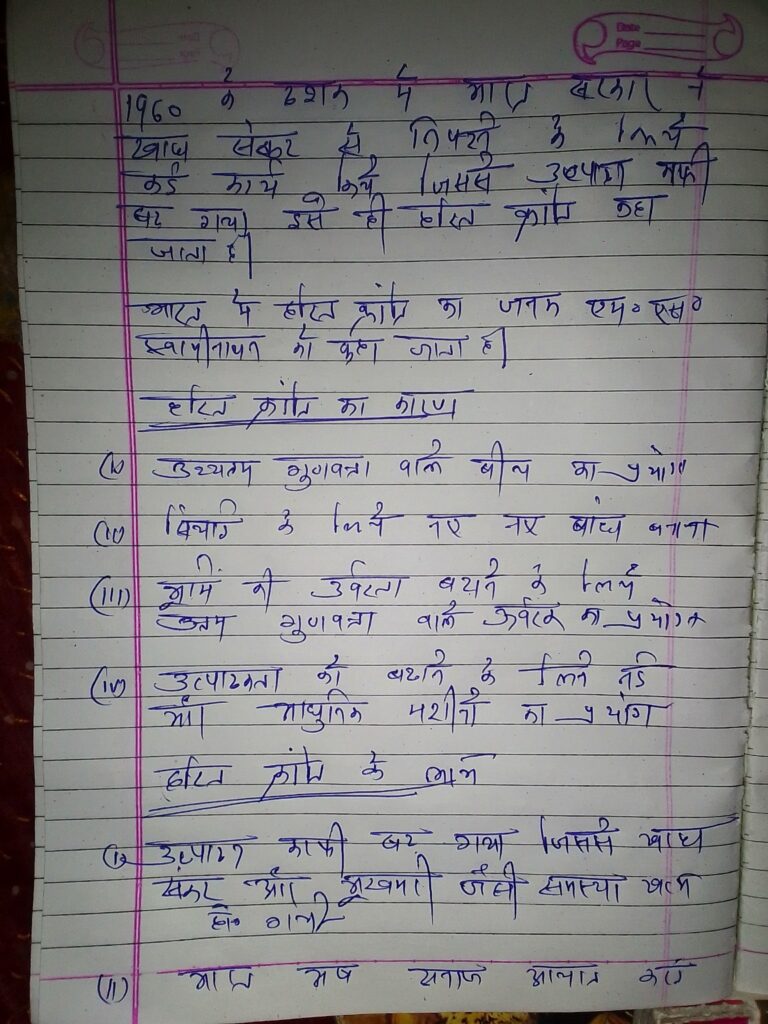 Date
Page
1960 के दशक में भारत सरकार ने
खाद्य संकट से निपटने के लिये
कई कार्य किये जिससे उत्पादन काफी
बढ़ गया, इसे ही हरित क्रांति कहा
जाता है।
भारत में हरित क्रांति का जनक एम॰ एस॰
स्वामीनाथन को कहा जाता है।
हरित क्रांति का कारण
(i) उच्चतम गुणवत्ता वाले बीज का प्रयोग
(ii) सिंचाई के लिये नए नए बांध बनाना
(iii) भूमि की उर्वरता बढ़ाने के लिये
उत्तम गुणवत्ता वाले उर्वरक का प्रयोग
(iv) उत्पादकता को बढ़ाने के लिये नई
और आधुनिक मशीनों का प्रयोग
हरित क्रांति के लाभ
(i) उत्पादन काफी बढ़ गया जिससे खाद्य
संकट और भूखमरी जैसी समस्या खत्म
हो गयी
(ii) भारत अब अनाज आयात करने